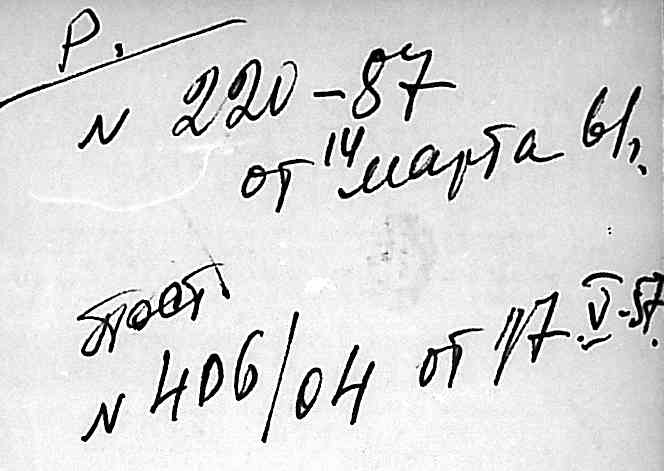 Р.
N 220-87
от 14 марта 61г.
пост.
N 406/04 от 17.V-57.